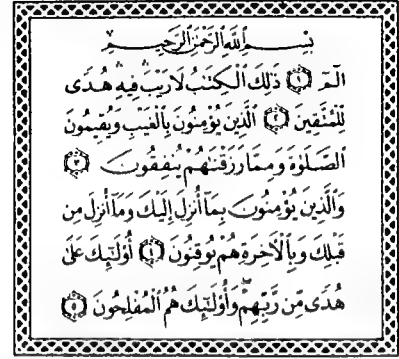 بِسْمِ ٱللَّهِ ٱلرَّحْمَٰنِ ٱلرَّحِيمِ
الٓمٓ ۝١ ذَٰلِكَ ٱلْكِتَٰبُ لَا رَيْبَ ۛ فِيهِ ۛ هُدًى
لِّلْمُتَّقِينَ ۝٢ ٱلَّذِينَ يُؤْمِنُونَ بِٱلْغَيْبِ وَيُقِيمُونَ
ٱلصَّلَوٰةَ وَمِمَّا رَزَقْنَٰهُمْ يُنفِقُونَ ۝٣
وَٱلَّذِينَ يُؤْمِنُونَ بِمَآ أُنزِلَ إِلَيْكَ وَمَآ أُنزِلَ مِن
قَبْلِكَ وَبِٱلْءَاخِرَةِ هُمْ يُوقِنُونَ ۝٤ أُو۟لَٰٓئِكَ عَلَىٰ
هُدًى مِّن رَّبِّهِمْ ۖ وَأُو۟لَٰٓئِكَ هُمُ ٱلْمُفْلِحُونَ ۝٥